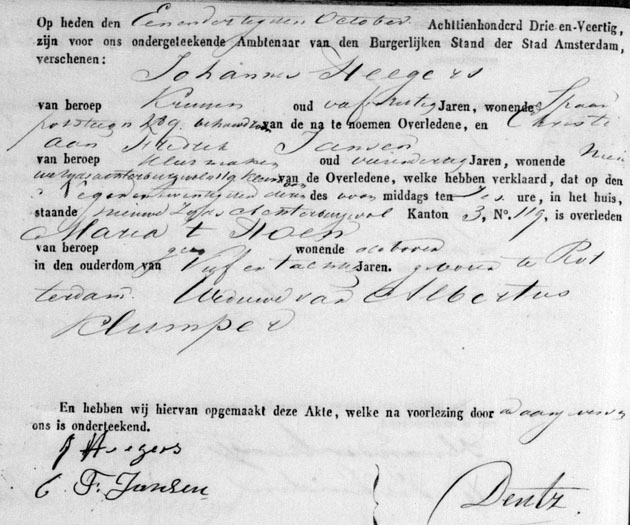 Op heden den Eenendertigsten October Achttienhonderd Drie-en-Veertig,
zijn voor ons ondergeteekende Ambtenaar van den Burgerlijken Stand der Stad Amsterdam,
verschenen:
Johannes Heegers
van beroep oud vijfenveertig Jaren, wonende Spaar
No 29 behuwdzoon van de na te noemen Overledene, en Christi
aan Fredrik Jansen
van beroep kleermaker oud Jaren, wonende Nieu
we zyds achterburgwal 119 kleinzoon van de Overledene, welke hebben verklaard, dat op den
Negenentwintigsten dezer des voor middags ten ure, in het huis,
staande nieuwe Zyds Achterburgwal Kanton 3, No. 119, is overleden
Maria t Hoen
van beroep geen wonende aldaar
in den ouderdom van Vijf en tachtig Jaren. geboren te Rot
terdam. Weduwe van Albertus
Klumper
En hebben wij hiervan opgemaakt deze Akte, welke na voorlezing door
ons is onderteekend.
J Heegers
C F. Jansen
Dentz